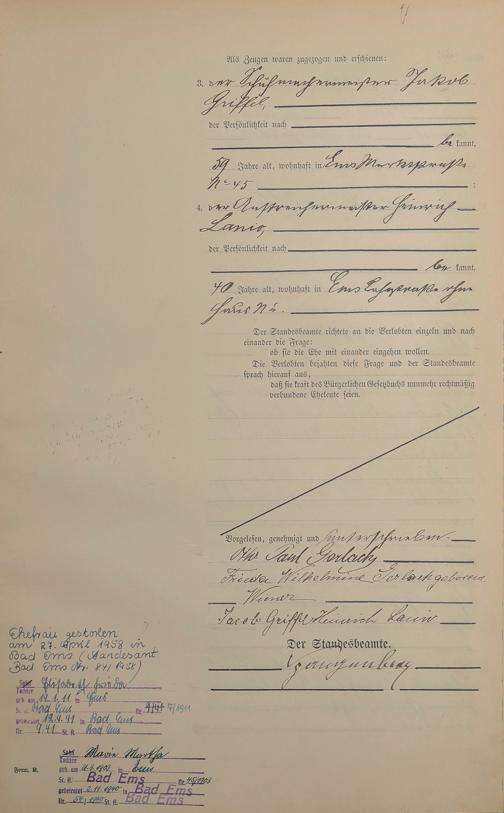 Als Zeugen waren zugezogen und erschienen:
3. der Schuhmachermeister Jakob
Griffel,
der Persönlichkeit nach
be kannt,
59 Jahre alt, wohnhaft in Ems Marktstraße
No 45 ;
4. der Anstreichermeister Heinrich
Lanio,
der Persönlichkeit nach
be kannt,
40 Jahre alt, wohnhaft in Ems ohne
Haus No.
Der Standesbeamte richtete an die Verlobten einzeln und nach
einander die Frage:
ob sie die Ehe mit einander eingehen wollen.
Die Verlobten bejahten diese Frage und der Standesbeamte
sprach hierauf aus,
daß sie kraft des Bürgerlichen Gesetzbuchs nunmehr rechtmäßig
verbundene Eheleute seien.
Vorgelesen, genehmigt und unterschrieben
Otto Paul Gerlach
Frieda Wilhelmine Gerlach geborene
Jacob Griffel Heinrich Lanio
Der Standesbeamte.
Ehefrau gestorben
am 27. April 1958 in
Bad Ems (Standesamt
Bad Ems Nr. 84/1958)
Tochter Elisabeth Frieda
geb. am 19.1.11 in Ems
St. A. Bad Ems Nr. 7/1911
geheiratet in Bad Ems
Nr. 9.41 St. A. Bad Ems
Tochter Maria Martha
geb. am in Ems
St. A. Bad Ems Nr.
geheiratet 2.11.1940 in Bad Ems
Nr. St. A. Bad Ems
Form. B.